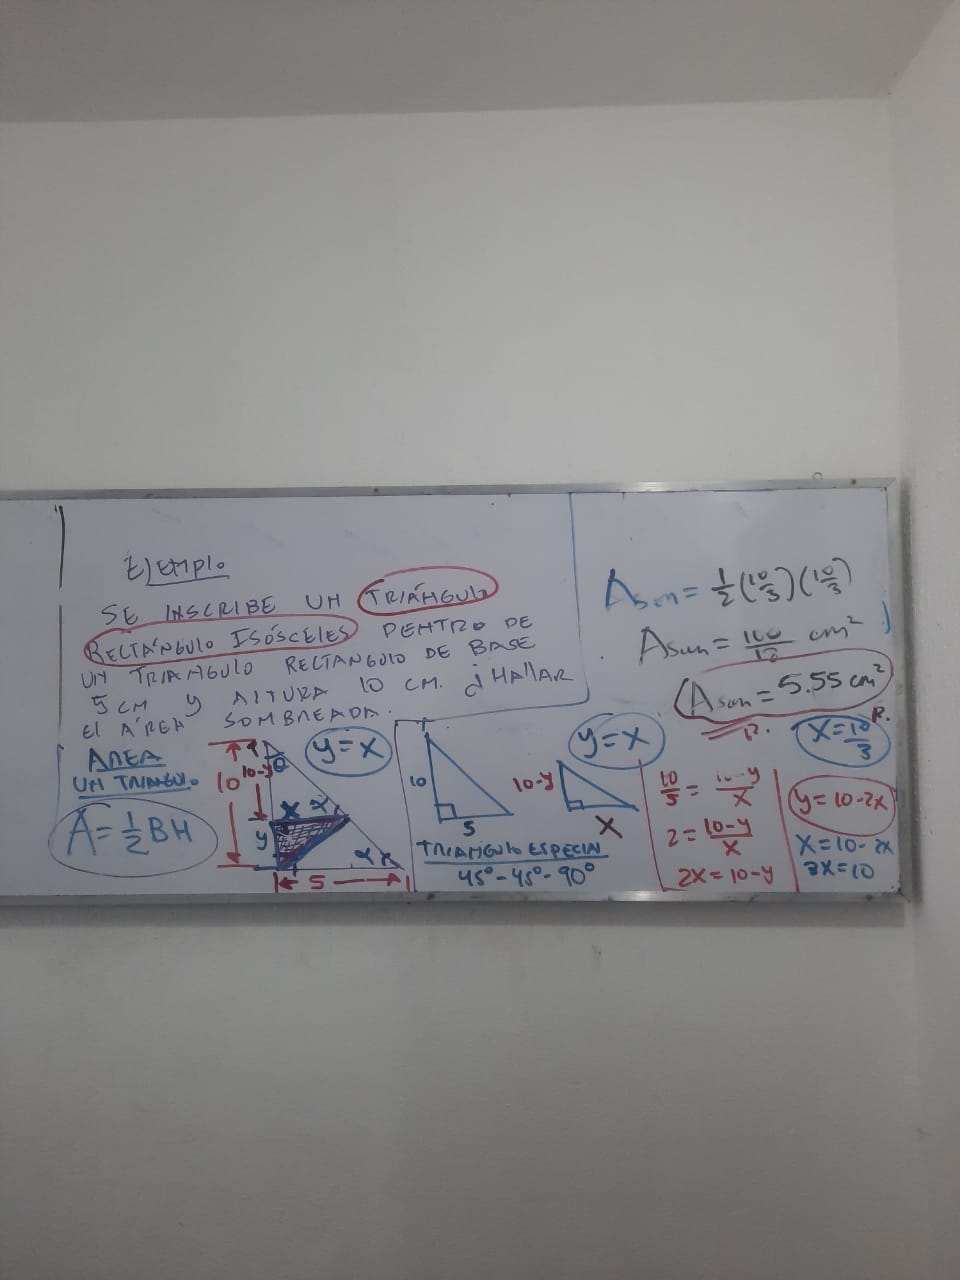 Ejemplo
SE INSCRIBE UN TRIÁNGULO
RECTÁNGULO ISÓSCELES DENTRO DE
UN TRIANGULO RECTANGULO DE BASE
5 CM Y ALTURA 10 CM. ¿HALLAR
El ÁREA SOMBREADA.
AREA
UN TRIANGULO
A = 1/2 BH
10
10-y
θ
x
α
y
α
5
y=x
10
5
10-y
x
y=x
TRIANGULO ESPECIAL
45°-45°-90°
10/5 = 10-y/x
2 = 10-y/x
2X = 10-y
Asom = 1/2 (10/3)(10/3)
Asom = 100/18 cm²
Asom = 5.55 cm²
R.
X = 10/3
R.
y = 10-2x
X = 10-2x
3X = 10